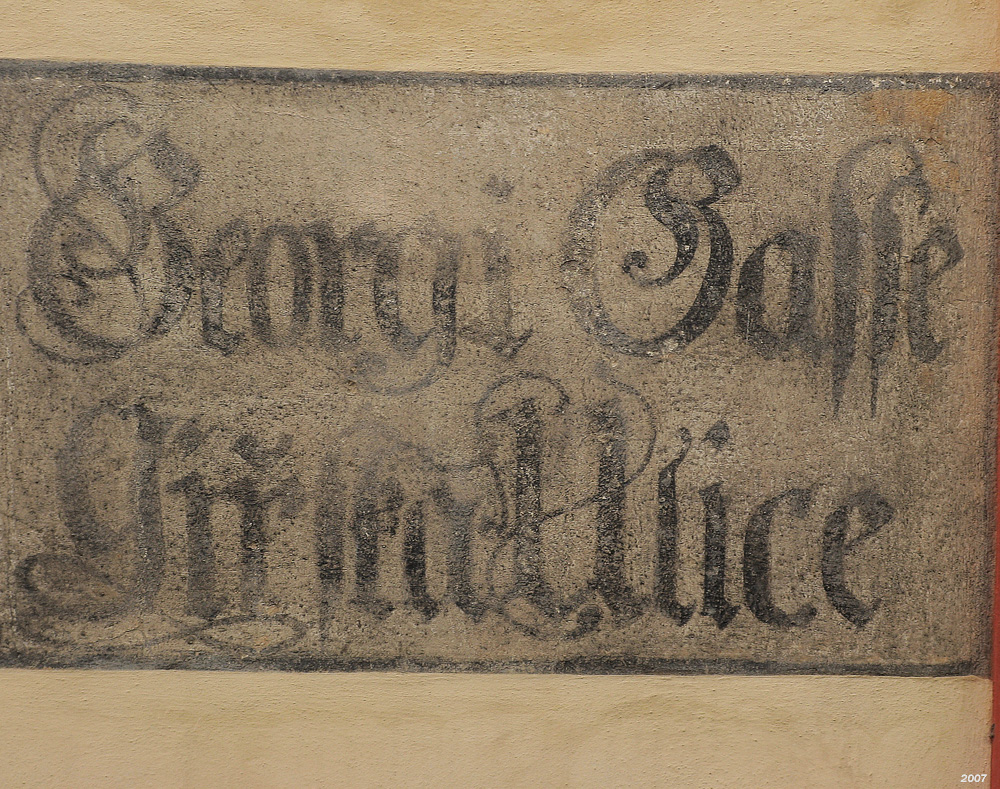 Georgi Gaſſe
Ulice
2007